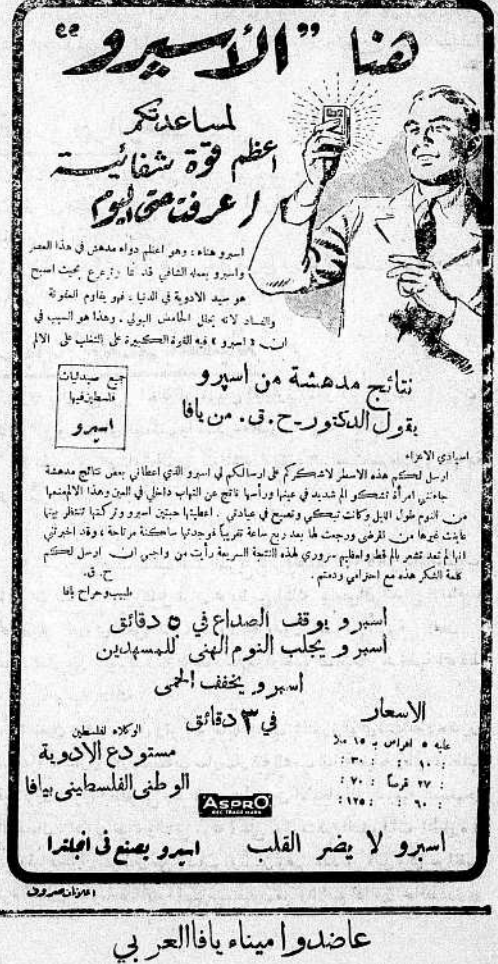 هنا "الأسبرو"
لمساعدتكم
اعظم قوة شفائية
عرفت حتى اليوم
اسبرو هناء : وهو اعظم دواء مدهش في هذا العصر
واسبرو بعمله الشافي قد نما وترعرع بحيث اصبح
هو سيد الادوية في الدنيا ، فهو يقاوم العفونة
والفساد لانه يحلل الحامض البولي . وهذا هو السبب في
ان « اسبرو » فيه القوة الكبيرة على التغلب على الالم
جميع صيدليات
فلسطين فيها
اسبرو
نتائج مدهشة من اسبرو
يقول الدكتور - ح . ق . من يافا
اسيادي الاعزاء
ارسل لكم هذه الاسطر لاشكركم على ارسالكم لي اسبرو الذي اعطاني بعض نتائج مدهشة
جاءتني امرأة تشكو الم شديد في عينها ورأسها ناتج عن التهاب داخلي في العين وهذا الالم منعها
من النوم طول الليل وكانت تبكي وتصيح في عيادتي . اعطيتها حبتين اسبرو وتركتها تنتظر بينما
عاينت غيرها من المرضى ورجعت لها بعد ربع ساعة تقريباً فوجدتها ساكنة مرتاحة ، وقد اخبرتني
انها لم تعد تشعر بالم قط ولعظيم سروري لهذه النتيجة السريعة رأيت من واجبي ان ارسل لكم
كلمة الشكر هذه مع احترامي ودمتم .
ح . ق .
طبيب وجراح يافا
اسبرو يوقف الصداع في ٥ دقائق
اسبرو يجلب النوم الهني للمسهدين
اسبرو يخفف الحمى
في ٣ دقائق
الاسعار
علبه ٥ اقراص بـ ١٥ ملا
: ١٠ : : ٣٠ :
: ٢٧ قرصاً : ٧٠ :
: ٦٠ : : ١٢٥ :
الوكلاء لفلسطين
مستودع الادوية
الوطني الفلسطيني بيافا
ASPRO
REG. TRADE MARK
اسبرو لا يضر القلب اسبرو يصنع في انجلترا
اعلانات صروف
عاضدوا ميناء يافا العربي